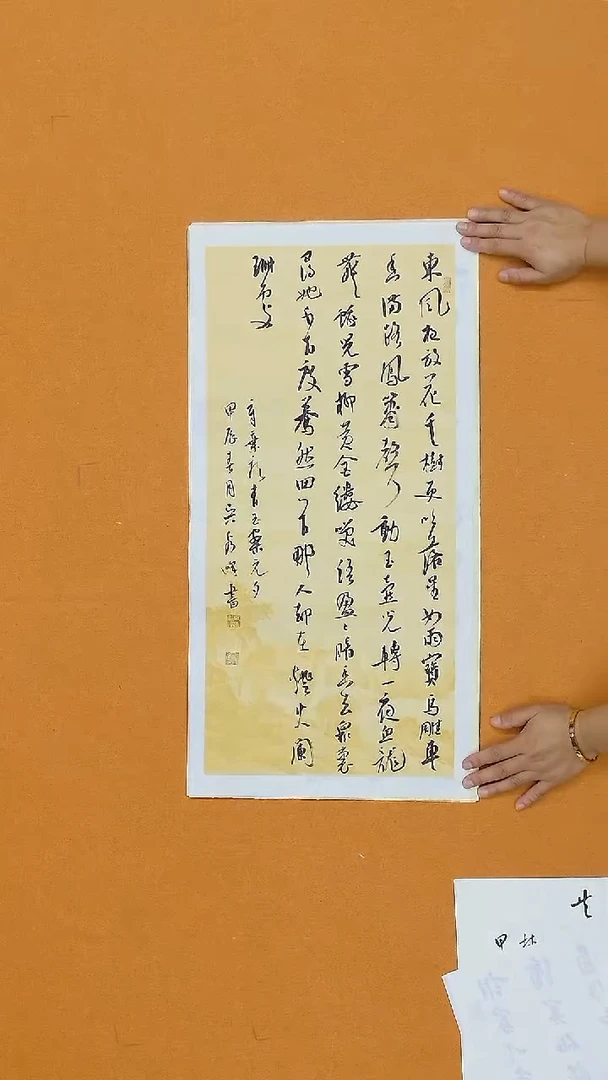 東風夜放花千樹更吹落星如雨寶馬雕車
香滿路鳳簫聲動玉壺光轉一夜魚龍
舞蛾兒雪柳黃金縷笑語盈〻暗香去眾裏
尋她千百度驀然回首那人却在燈火闌
珊處
辛棄疾青玉案元夕
甲辰春月書
甲